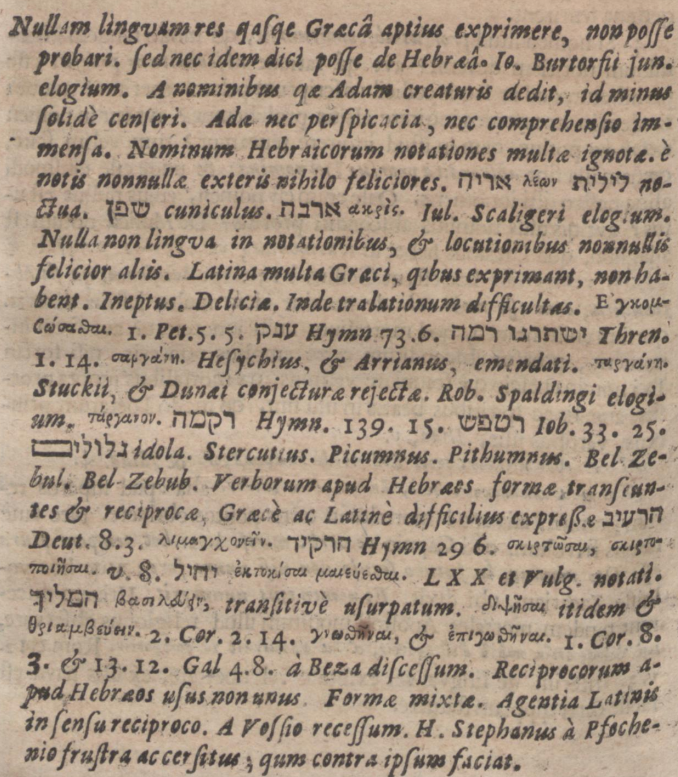 Nullam lingvam res qasqe Græcâ aptius exprimere, non posse
probari. sed nec idem dici posse de Hebræâ. Io. Burtorfii jun.
elogium. A nominibus qæ Adam creaturis dedit, id minus
solidè censeri. Adæ nec perspicacia, nec comprehensio im-
mensa. Nominum Hebraicorum notationes multæ ignotæ. è
notis nonnullæ exteris nihilo feliciores. אריה λέων לילית no-
ctua. שפן cuniculus. ארבה ἀκρὶς. Iul. Scaligeri elogium.
Nulla non lingva in notationibus, & locutionibus nonnullis
felicior aliis. Latina multa Græci, qibus exprimant, non ha-
bent. Ineptus. Deliciæ. Inde tralationum difficultas. Ἐγκομ-
βώσασθαι. 1. Pet. 5. 5. ענק Hymn 73. 6. רמה ישתרגו Thren.
1. 14. σαργάνη. Hesychius, & Arrianus, emendati. ταργάνη.
Stuckii, & Dunæi conjecturæ rejectæ. Rob. Spaldingi elogi-
um. τάργανον. רקמה Hymn. 139. 15. רטפש Iob. 33. 25.
גלולים idola. Stercutius. Picumnus. Pithumnus. Bel Ze-
bul. Bel-Zebub. Verborum apud Hebræos formæ transeun-
tes & reciprocæ, Græcè ac Latinè difficilius expressæ הרעיב
Deut. 8. 3. λιμαγχονεῖν. הרקיד Hymn 29 6. σκιρτῶσαι, σκιρτο-
ποιῆσαι. v. 8. יחיל ἐκτοκίσαι μαιεύεσθαι. LXX et Vulg. notati.
המליך βασιλεύειν, transitivè usurpatum. διψῆσαι itidem &
θριαμβεύειν. 2. Cor. 2. 14. γνωσθῆναι, & ἐπιγνωσθῆναι. 1. Cor. 8.
3. & 13. 12. Gal 4. 8. à Beza discessum. Reciprocorum a-
pud Hebræos usus non unus. Formæ mixtæ. Agentia Latinis
in sensu reciproco. A Vossio recessum. H. Stephanus à Pfoche-
nio frustra accersitus, qum contra ipsum faciat.